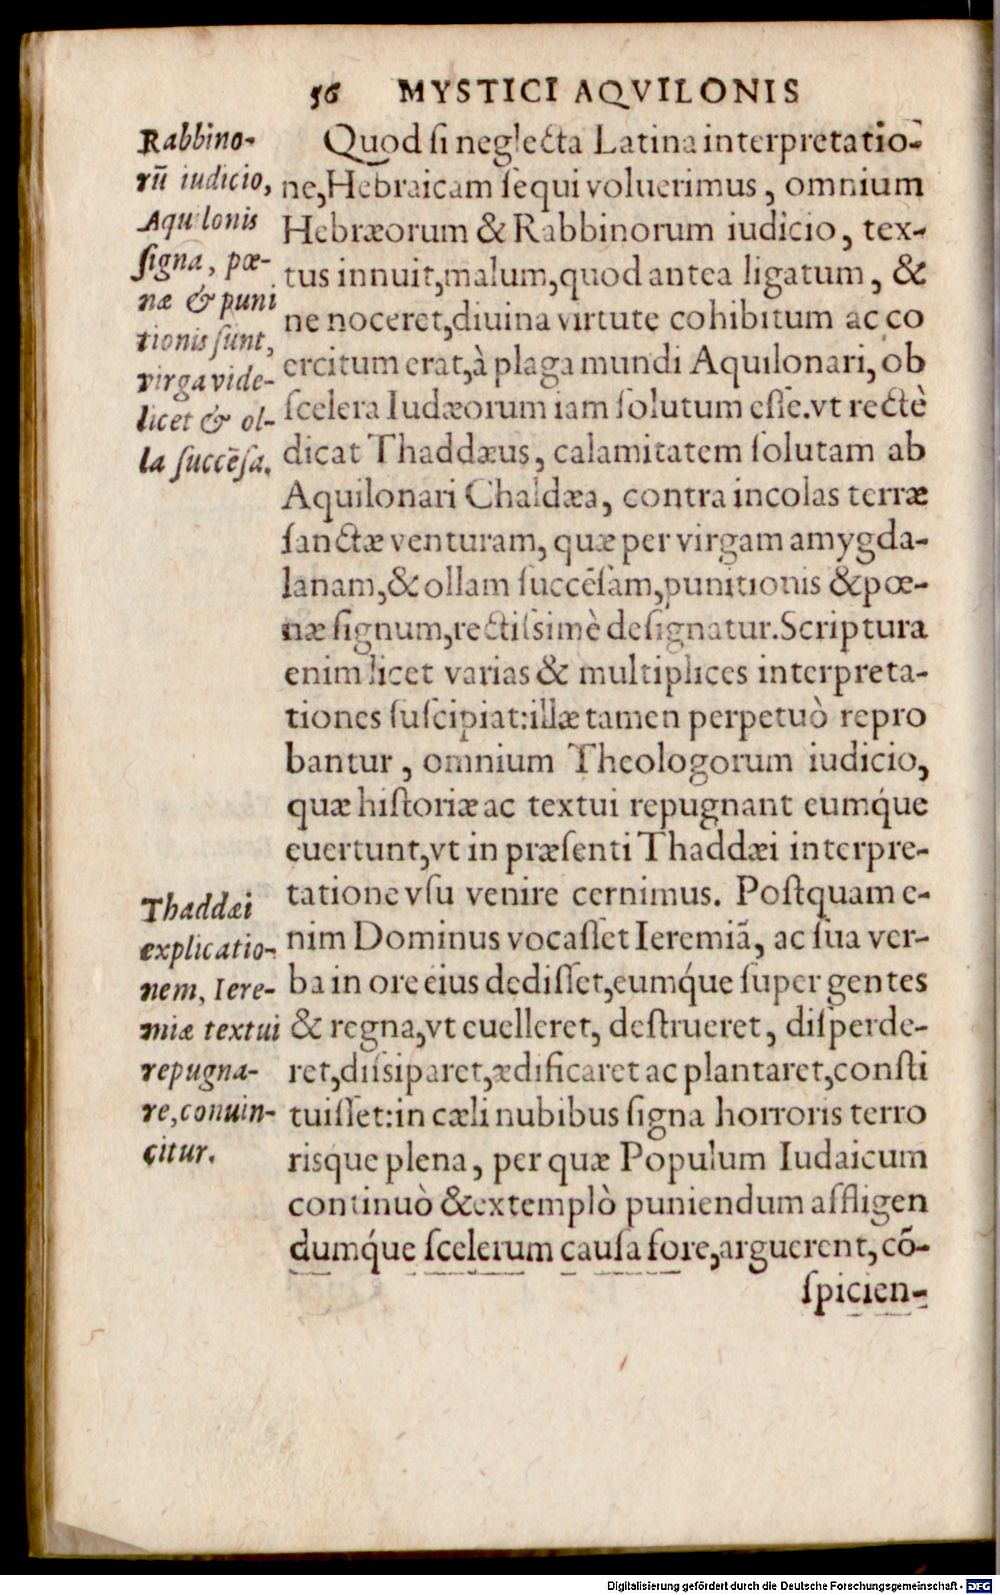 56 MYSTICI AQVILONIS
Rabbino-
rū iudicio,
Aquilonis
ſigna, pœ-
næ & puni
tionis ſunt,
virga vide-
licet & ol-
la ſuccēſa.
Quod ſi neglecta Latina interpretatio-
ne, Hebraicam ſequi voluerimus, omnium
Hebræorum & Rabbinorum iudicio, tex-
tus innuit, malum, quod antea ligatum, &
ne noceret, diuina virtute cohibitum ac co
ercitum erat, à plaga mundi Aquilonari, ob
ſcelera Iudæorum iam ſolutum eſſe. vt rectè
dicat Thaddæus, calamitatem ſolutam ab
Aquilonari Chaldæa, contra incolas terræ
ſanctæ venturam, quæ per virgam amygda-
lanam, & ollam ſuccēſam, punitionis & pœ-
næ ſignum, rectiſsimè deſignatur. Scriptura
enim licet varias & multiplices interpreta-
tiones ſuſcipiat: illæ tamen perpetuò repro
bantur, omnium Theologorum iudicio,
quæ hiſtoriæ ac textui repugnant eumq́ue
euertunt, vt in præſenti Thaddæi interpre-
tatione vſu venire cernimus. Poſtquam e-
nim Dominus vocaſſet Ieremiā, ac ſua ver-
ba in ore eius dediſſet, eumq́ue ſuper gentes
& regna, vt euelleret, deſtrueret, diſperde-
ret, diſsiparet, ædificaret ac plantaret, conſti
tuiſſet: in cæli nubibus ſigna horroris terro
risque plena, per quæ Populum Iudaicum
continuò & extemplò puniendum affligen
dumq́ue ſcelerum cauſa fore, arguerent, cō-
ſpicien-
Thaddæi
explicatio-
nem, Iere-
miæ textui
repugna-
re, conuin-
citur.
Digitalisierung gefördert durch die Deutsche Forschungsgemeinschaft - DFG